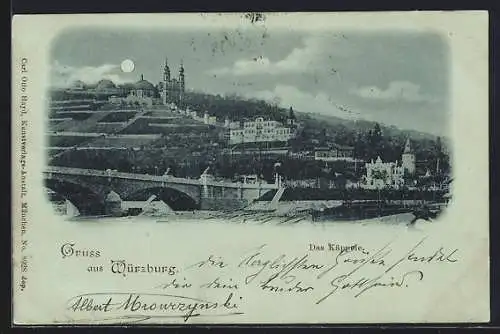 Carl Otto Hayd, Kunstverlags-Anstalt, München, No. 8028 dep.
Gruss
aus Würzburg.
Das Käppele.
die Herzlichsten Grüsse sendet
die dein
Albert Mrowczynski